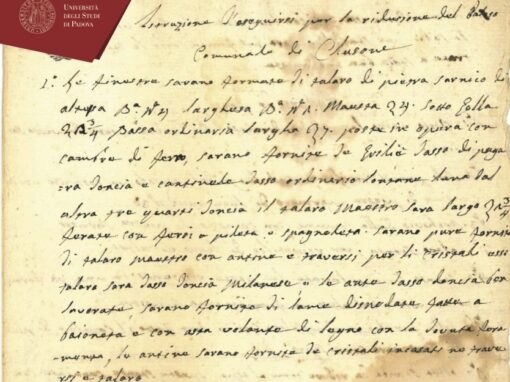 UNIVERSITÀ
DEGLI STUDI
DI PADOVA
Istruzione d'eseguirsi per la riduzione del Palaso
Comunale di Clusone
1.° Le finestre sarano formate di talaro di pietra sarnico di
altesa largesa Maestà 34. sotto
3/4 Bassa ordinaria largha 37. poste in opera con
cambre di ferro, sarano fornite de dasso di
oncia e cantinele dasso ordinario lontane luna dal
altra tre quarti doncia il talaro Maestro sara largo 3/4
ferate con fersi a pileta e spagnoleta. sarano pure fornite
di talaro maestro con antine e traversi per li cristali esso
talaro sara dasso doncia Milanese e le ante dasso doncia ben
lavorate, sarano fornite di lame disnodate fatte a
baioneta e con asta volante di legno con la dovuta fera
menta, le antine sarano fornite de cristali incasati ne traver
si e talaro